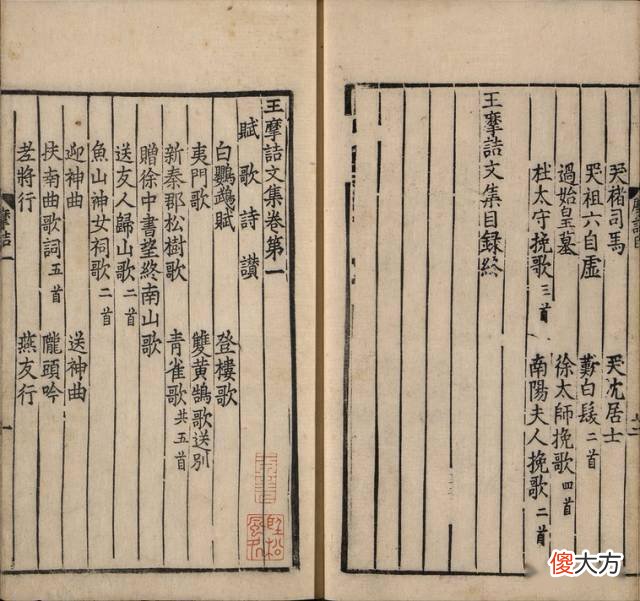 哭褚司馬 哭沈居士
哭祖六自虛 歎白髮二首
過始皇墓 徐太師挽歌四首
杜太守挽歌三首 南陽夫人挽歌二首
王摩詰文集目録終
王摩詰文集卷第一
賦歌詩讃
白鸚鵡賦 登樓歌
夷門歌 雙黃鵠歌送別
新秦那松樹歌 青雀歌共五首
贈徐中書望終南山歌
送友人歸山歌二首
魚山神女祠歌二首
迎神曲 送神曲
扶南曲歌詞五首 隴頭吟
老將行 燕友行
摩詰一
一
傻大方